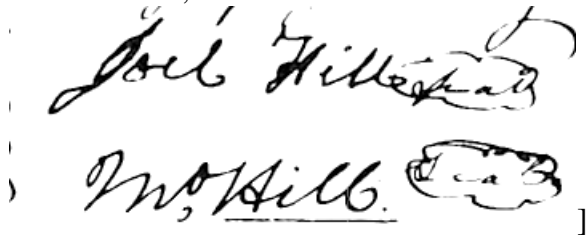 Joel Hill Seal
Wm Hill. Seal
]